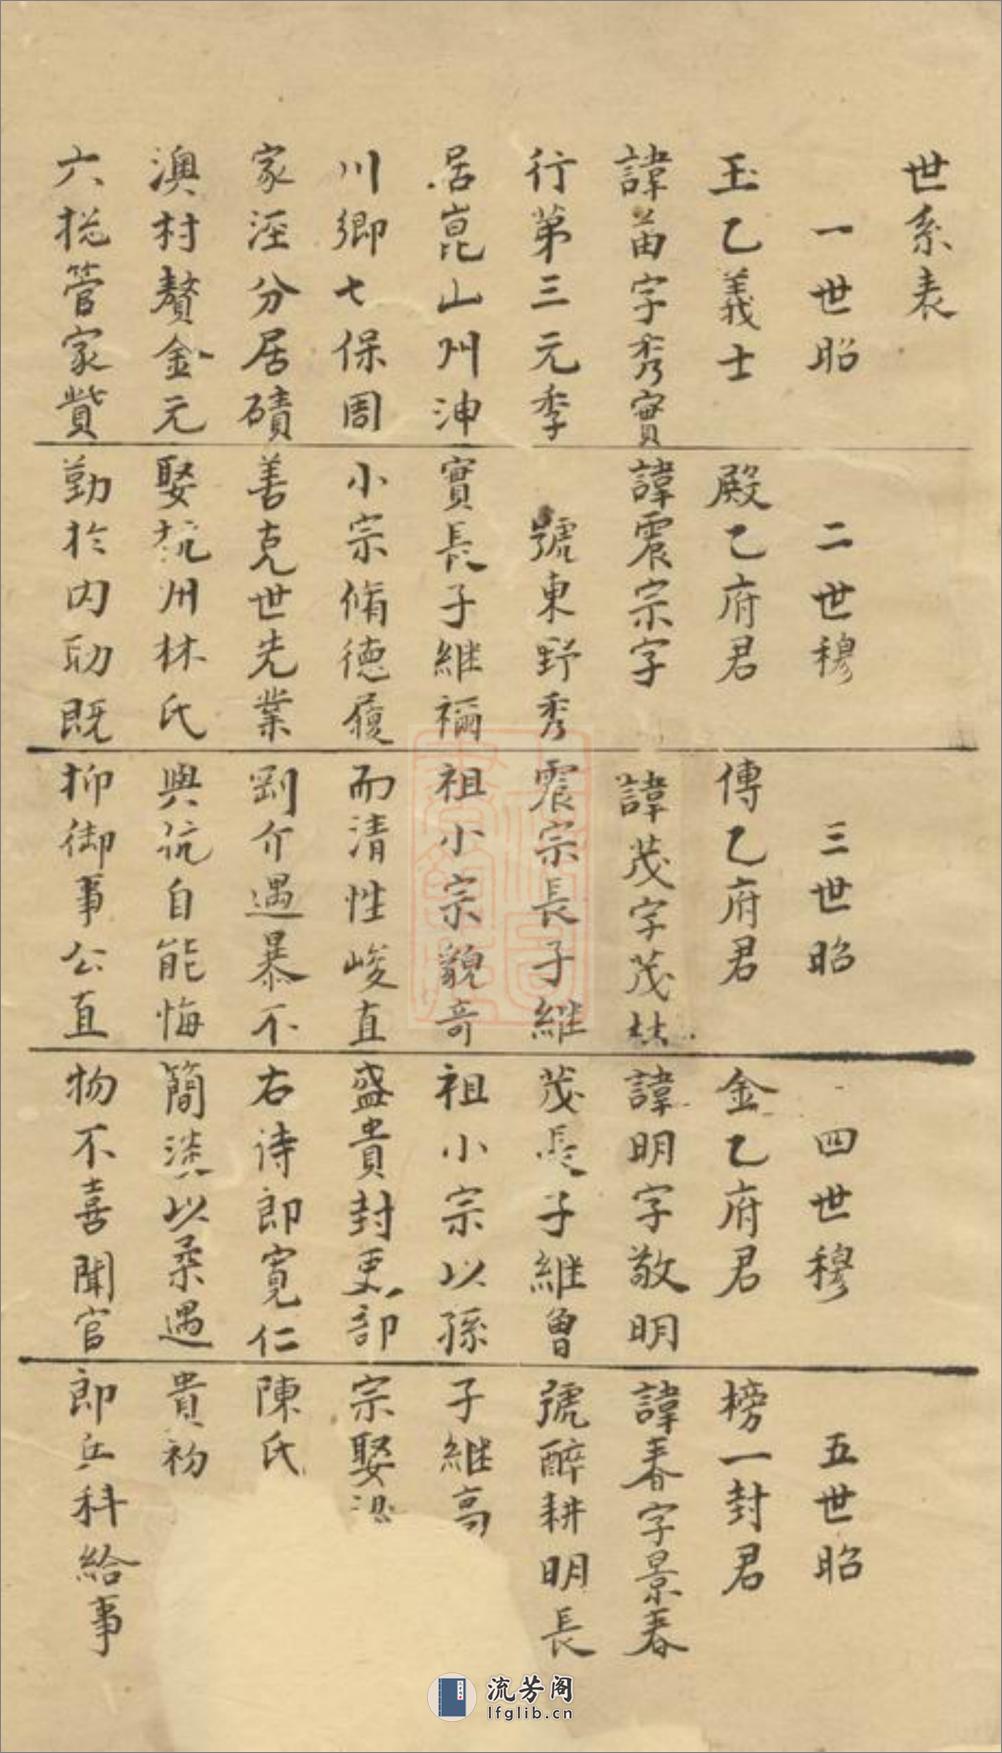 世系表
一世昭
玉乙義士
諱苗字秀實
行第三元季
居崑山州浀
川鄉七保周
家涇分居磧
澳村贅金元
六提管家貲
二世穆
殿乙府君
諱震宗字
號東野秀
實長子繼禰
小宗脩德履
善克世先業
娶杭州林氏
勤於內助既
三世昭
傳乙府君
諱茂字茂林
震宗長子繼
祖小宗貌奇
而清性峻直
剛介遇暴不
與抗自能悔
抑御事公直
四世穆
金乙府君
諱明字敬明
茂長子繼曾
祖小宗以孫
盛貴封吏部
右侍郎寬仁
簡淡以柔遇
物不喜聞官
五世昭
榜一封君
諱春字景春
號醉耕明長
子繼高
宗娶
陳氏
貴初
郎兵科給事
流芳阁
lfglib.cn